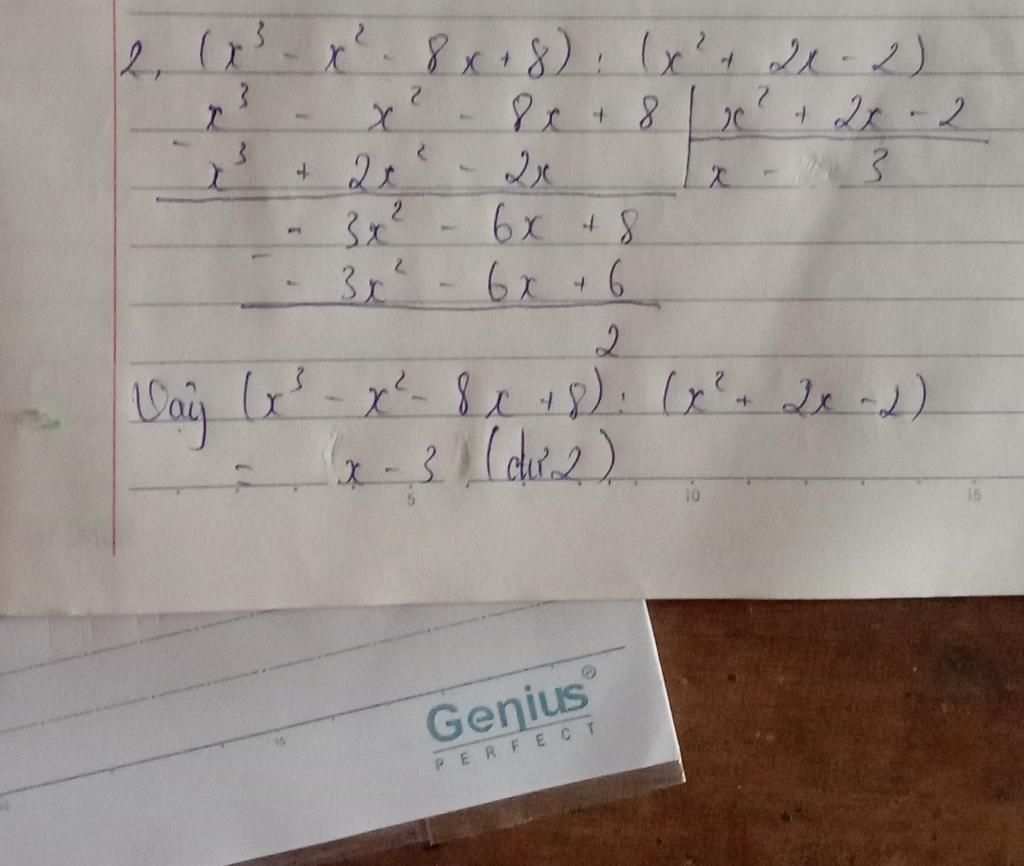 2, (x³ - x² - 8x + 8) : (x² + 2x - 2)
- x³ - x² - 8x + 8 | x² + 2x - 2
x³ + 2x² - 2x | x - 3
- - 3x² - 6x + 8
- 3x² - 6x + 6
2
Vậy (x³ - x² - 8x + 8) : (x² + 2x - 2)
= x - 3 (dư 2)
5 10 15
Genius®
PERFECT